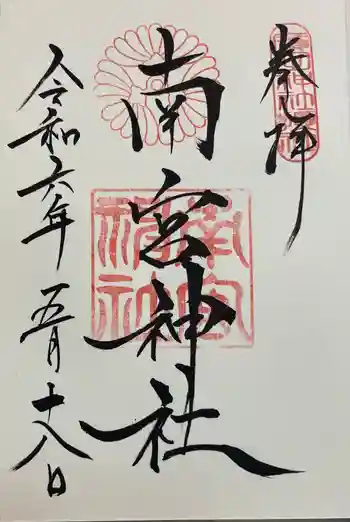 奉拝
南宮神社
令和六年
五月十八日